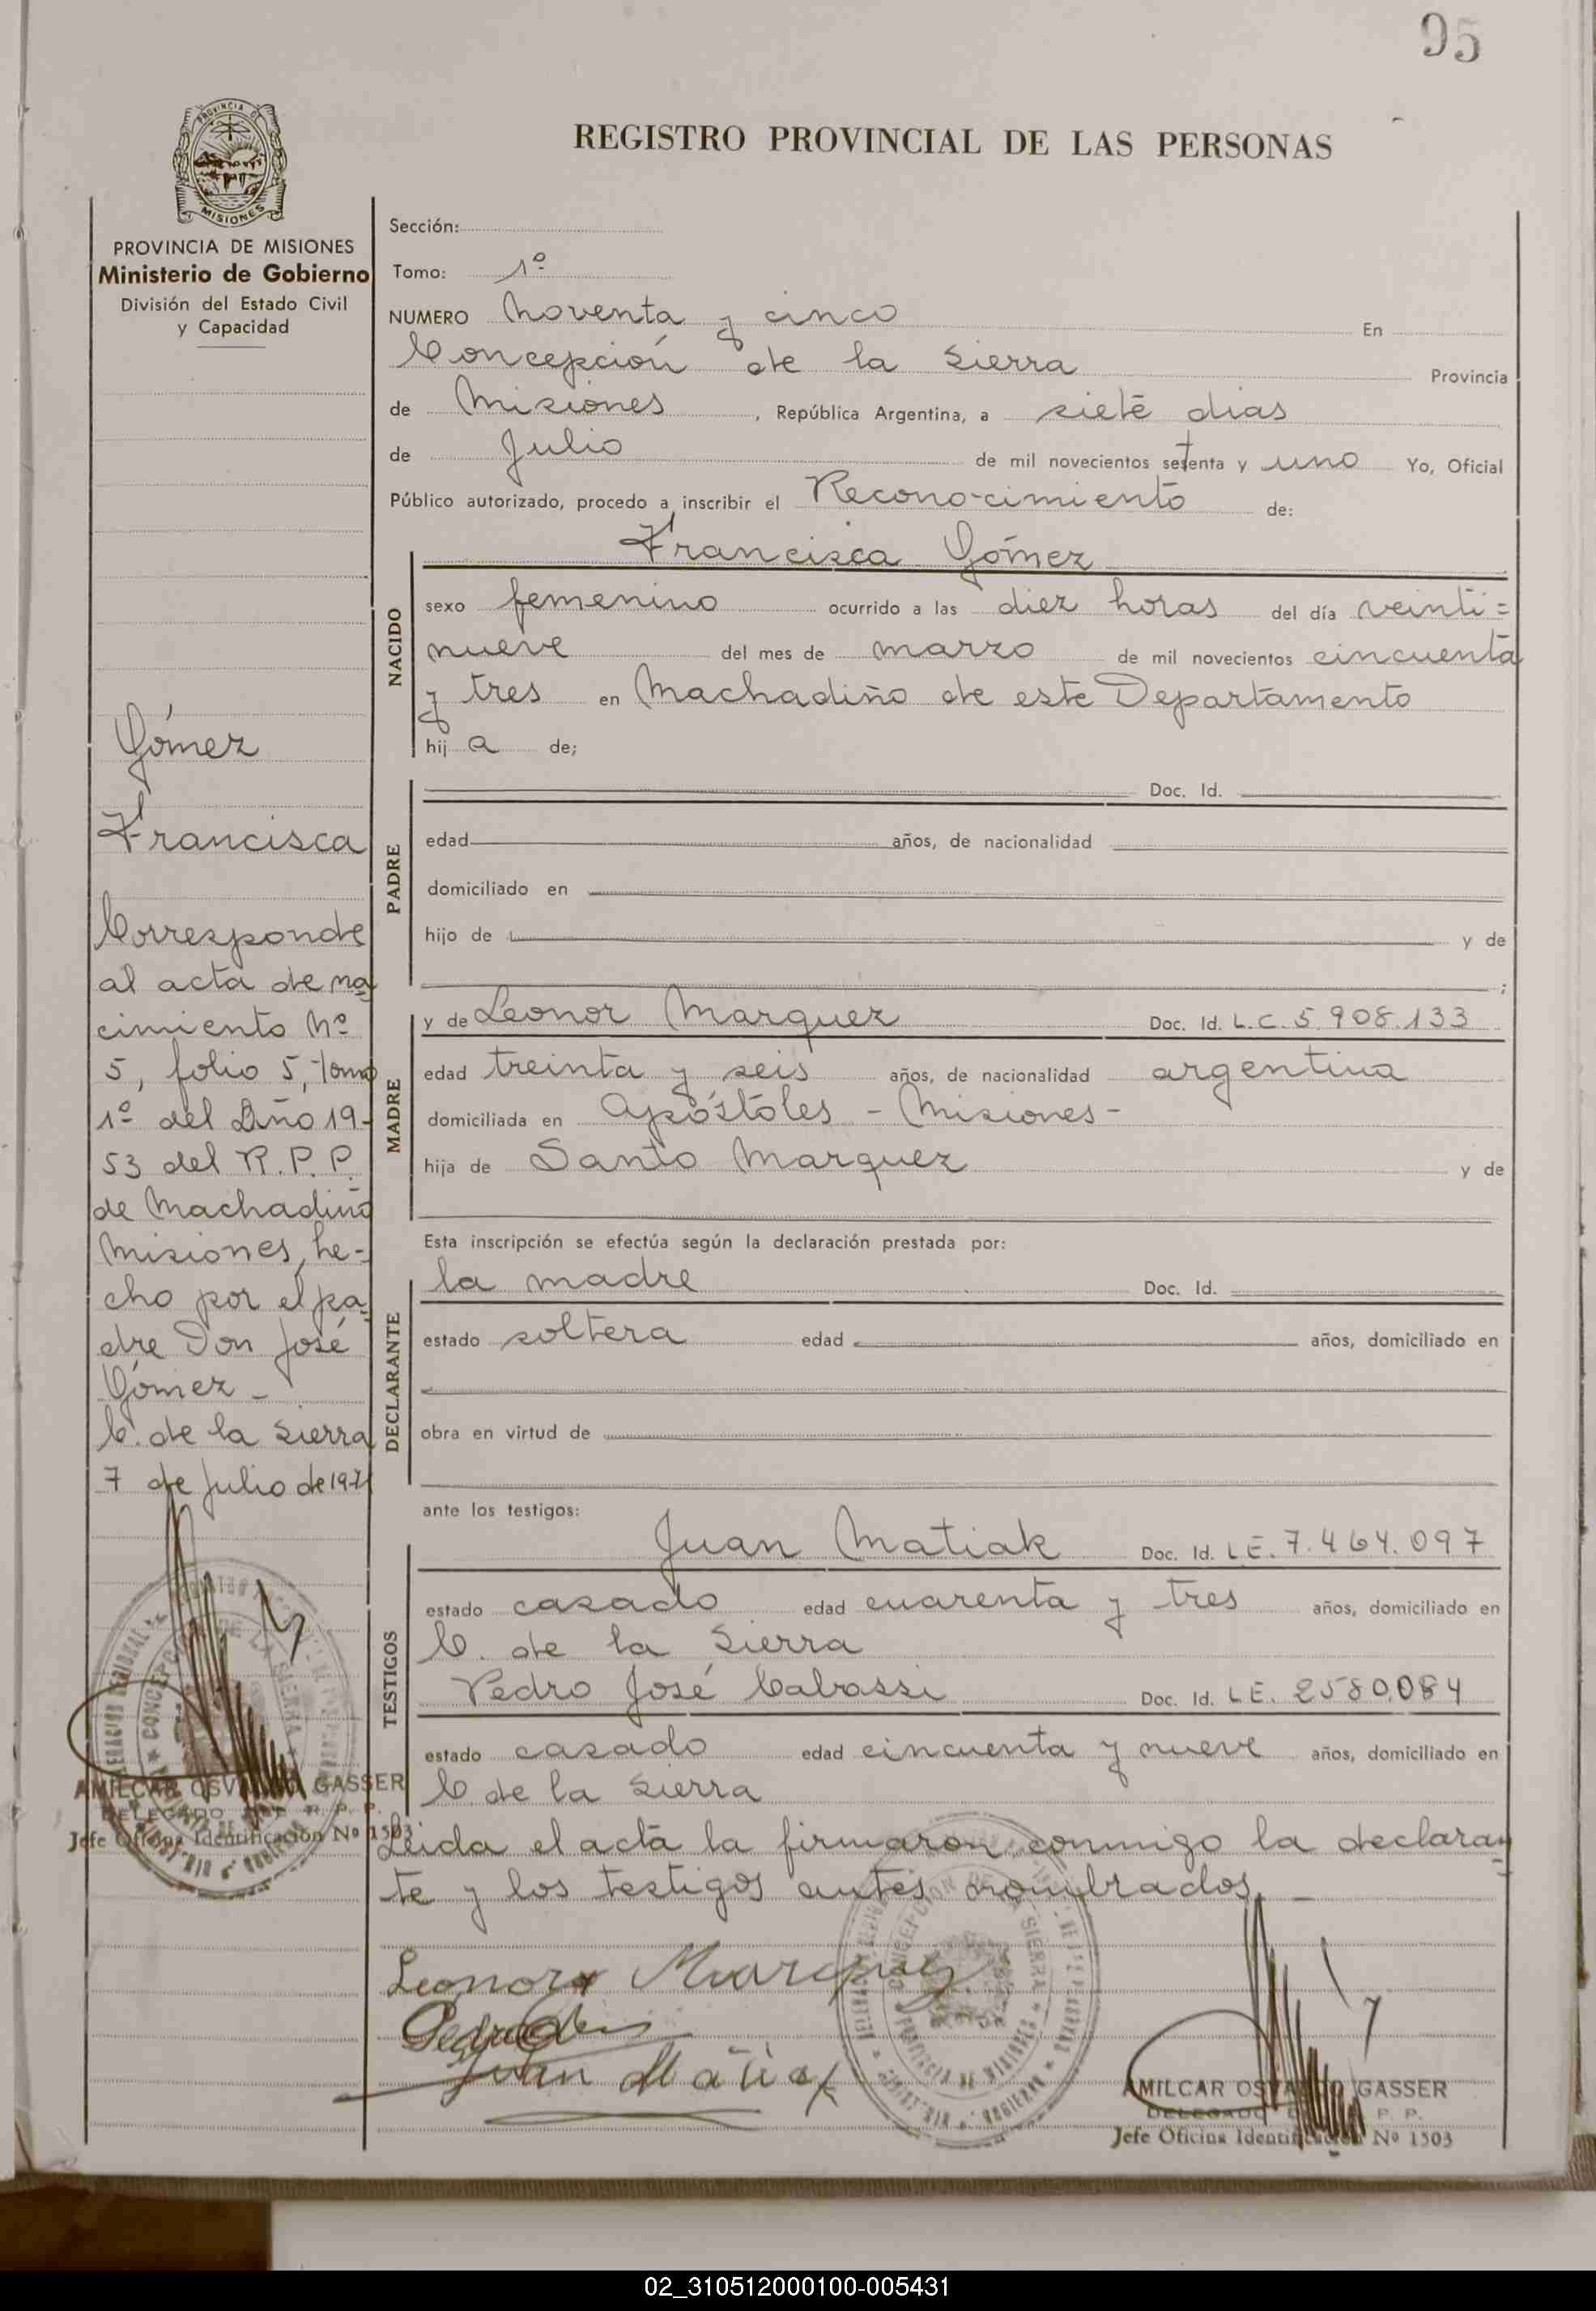 95
PROVINCIA DE
MISIONES
REGISTRO PROVINCIAL DE LAS PERSONAS
PROVINCIA DE MISIONES
Ministerio de Gobierno
División del Estado Civil
y Capacidad
Gómez
Francisca
Corresponde
al acta de na
cimiento Nº
5, folio 5, Tomo
1º del Año 19-
53 del R.P.P.
de Machadiño
Misiones, he-
cho por el pa
dre Don José
Gómez -
C. de la Sierra
7 de Julio de 1971
AMILCAR OSVALDO GASSER
DELEGADO DEL R. P. P.
Jefe Oficina Identificación Nº 1503
Sección:
Tomo: 1º
NUMERO Noventa y cinco En
Concepción de la Sierra Provincia
de Misiones, República Argentina, a siete dias
de Julio de mil novecientos setenta y uno Yo, Oficial
Público autorizado, procedo a inscribir el Recono-cimiento de:
Francisca Gómez
NACIDO
sexo femenino ocurrido a las diez horas del día veinti=
nueve del mes de marzo de mil novecientos cincuenta
y tres en Machadiño de este Departamento
hij a de;
PADRE
Doc. Id.
edad años, de nacionalidad
domiciliado en
hijo de y de
;
MADRE
y de Leonor Marquez Doc. Id. L.C. 5.908.133
edad treinta y seis años, de nacionalidad argentina
domiciliada en Apóstoles - Misiones -
hija de Santo Marquez y de
Esta inscripción se efectúa según la declaración prestada por:
DECLARANTE
la madre Doc. Id.
estado soltera edad años, domiciliado en
obra en virtud de
ante los testigos:
TESTIGOS
Juan Matiak Doc. Id. L.E. 7.464.097
estado casado edad cuarenta y tres años, domiciliado en
C. de la Sierra
Pedro José Cabassi Doc. Id. L.E. 2580.084
estado casado edad cincuenta y nueve años, domiciliado en
C. de la Sierra
Leida el acta la firmaron conmigo la declaran
te y los testigos antes nombrados. -
Leonora Marquez
Juan Matiak
CONCEPCION DE LA SIERRA
PROVINCIA DE MISIONES
AMILCAR OSVALDO GASSER
DELEGADO DEL R. P. P.
Jefe Oficina Identificación Nº 1503
02_310512000100-005431